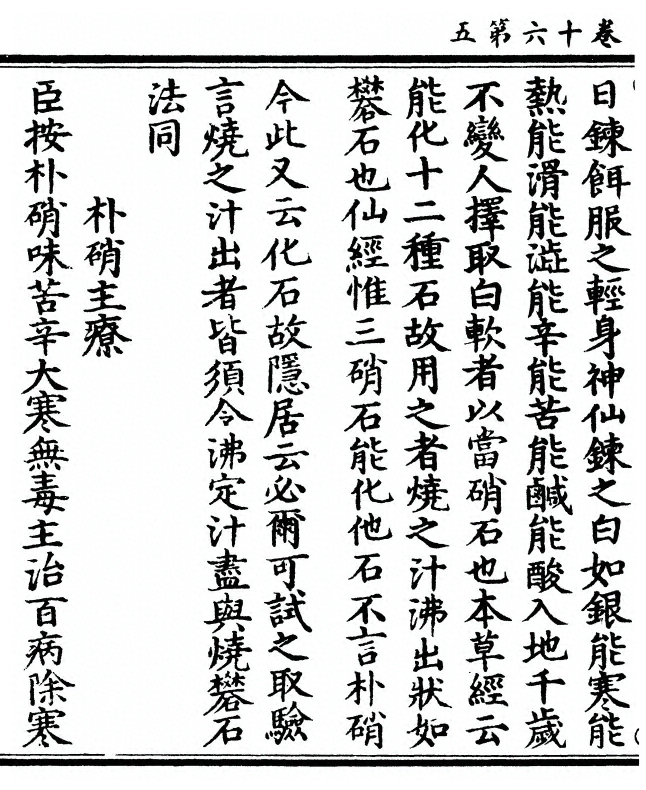 卷十六第五
日鍊餌服之輕身神仙鍊之白如銀能寒能
熱能滑能澁能辛能苦能鹹能酸入地千歲
不變人擇取白軟者以當硝石也本草經云
能化十二種石故用之者燒之汁沸出狀如
礬石也仙經惟三硝石能化他石不言朴硝
今此又云化石故隱居云必爾可試之取驗
言燒之汁出者皆須令沸定汁盡與燒礬石
法同
朴硝主療
臣按朴硝味苦辛大寒無毒主治百病除寒